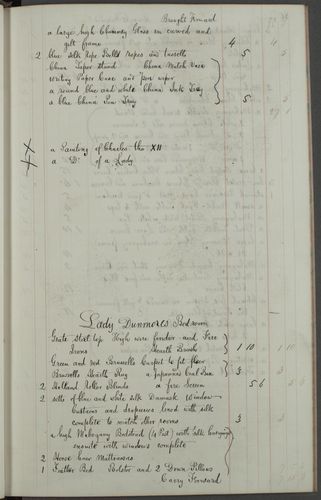 Brought Forward
a large high Chimney Glass in carved and
gilt frame 4 4
2 blue silk Rope Bell ropes and tassells 5 5
China Taper Stand China Match Vase
Writing Paper Case and pen wiper
a round blue and white China Ink Tray
a blue China Pen Tray 5 5
a Painting of Charles the XII
a Do of a Lady
Lady Dunmores Bedroom
Grate Steel top High wire fender and Fire
Irons Hearth Brush 1 10 1 10
Green and red Brussells Carpet to fit floor
Brussells Hearth Rug a Japanned Coal Box 3 3
2 Holland Roller Blinds a fire Screen 5 6
2 setts of blue and white silk Damask Window
Curtains and draperies lined with silk
complete to match other rooms 3 3
a high Mahogany Bedstead (4 Post) with silk hangings
ensuite with windows complete
2 Horse hair Mattresses
1 Feather Bed Bolster and 2 Down Pillows
Carry Forward